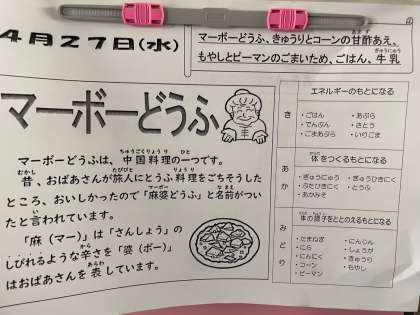 4月27日(水)
マーボーどうふ、きゅうりとコーンの甘酢あえ、
もやしとピーマンのごまいため、ごはん、牛乳
マーボーどうふ
マーボーどうふは、中国料理の一つです。
昔、おばあさんが旅人にとうふ料理をごちそうした
ところ、おいしかったので「麻婆どうふ」と名前がつい
たと言われています。
「麻(マー)」は「さんしょう」の
しびれるような辛さを「婆(ボー)」
はおばあさんを表しています。
エネルギーのもとになる
き
・ごはん ・あぶら
・でんぷん ・さとう
・ごまあぶら ・いりごま
体をつくるもとになる
あか
・ぎゅうにゅう ・ぎゅうひきにく
・ぶたひきにく ・とうふ
・あかみそ
体の調子をととのえるもとになる
みどり
・たまねぎ ・にんじん
・にら ・しょうが
・にんにく ・きゅうり
・コーン ・もやし
・ピーマン